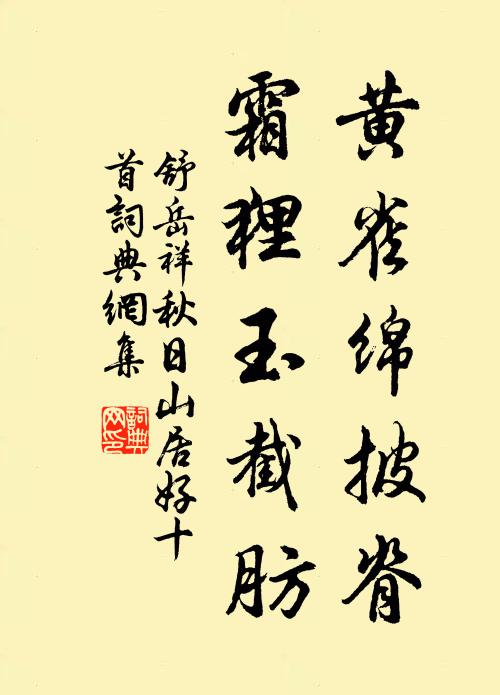 黄雀绵披脊
霜狸玉截肪
舒岳祥秋日山居好十
首詞典網集
詞典
网印